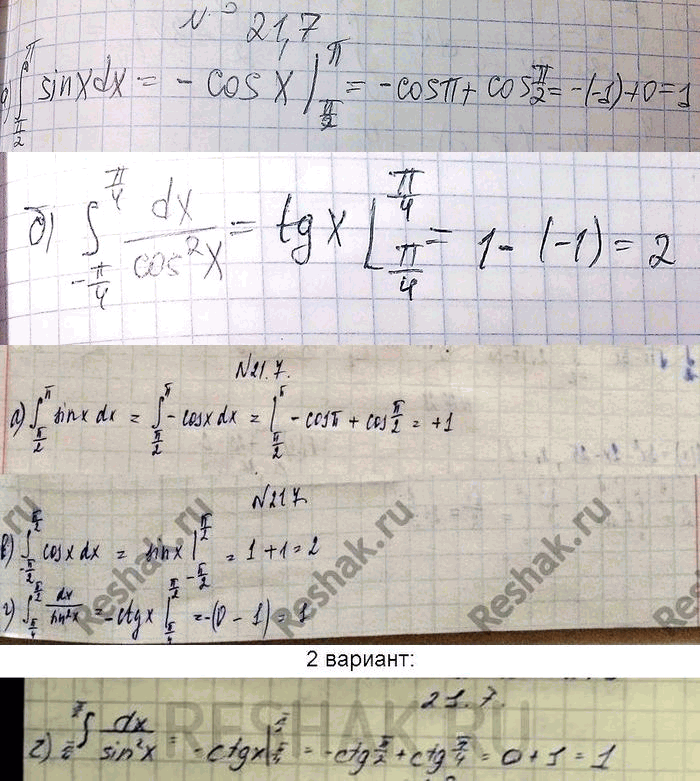 N.° 21,7
а) ∫_{π/2}^{π} sinxdx = -cosx |_{π/2}^{π} = -cosπ + cos π/2 = -(-1)+0=1
б) ∫_{-π/4}^{π/4} dx/cos²x = tgx |_{π/4}^{π/4} = 1-(-1) = 2
N21.7.
а) ∫_{π/2}^{π} sinx dx = ∫_{π/2}^{π} -cosx dx = |_{π/2}^{π} -cosπ + cos π/2 = +1
N21.7
в) ∫_{-π/2}^{π/2} cosx dx = sinx |_{-π/2}^{π/2} = 1+1=2
г) ∫_{π/4}^{π/2} dx/sin²x = -ctgx |_{π/4}^{π/2} = -(0-1)=1
Reshak.ru
Reshak.ru
2 вариант:
21.7.
г) ∫_{π/4}^{π/2} dx/sin²x = -ctgx |_{π/4}^{π/2} = -ctg π/2 + ctg π/4 = 0+1=1
RESHAK.RU